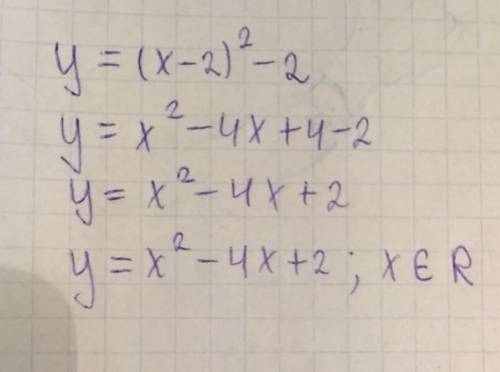 y = (x-2)² - 2
y = x² - 4x + 4 - 2
y = x² - 4x + 2
y = x² - 4x + 2 ; x ∈ R